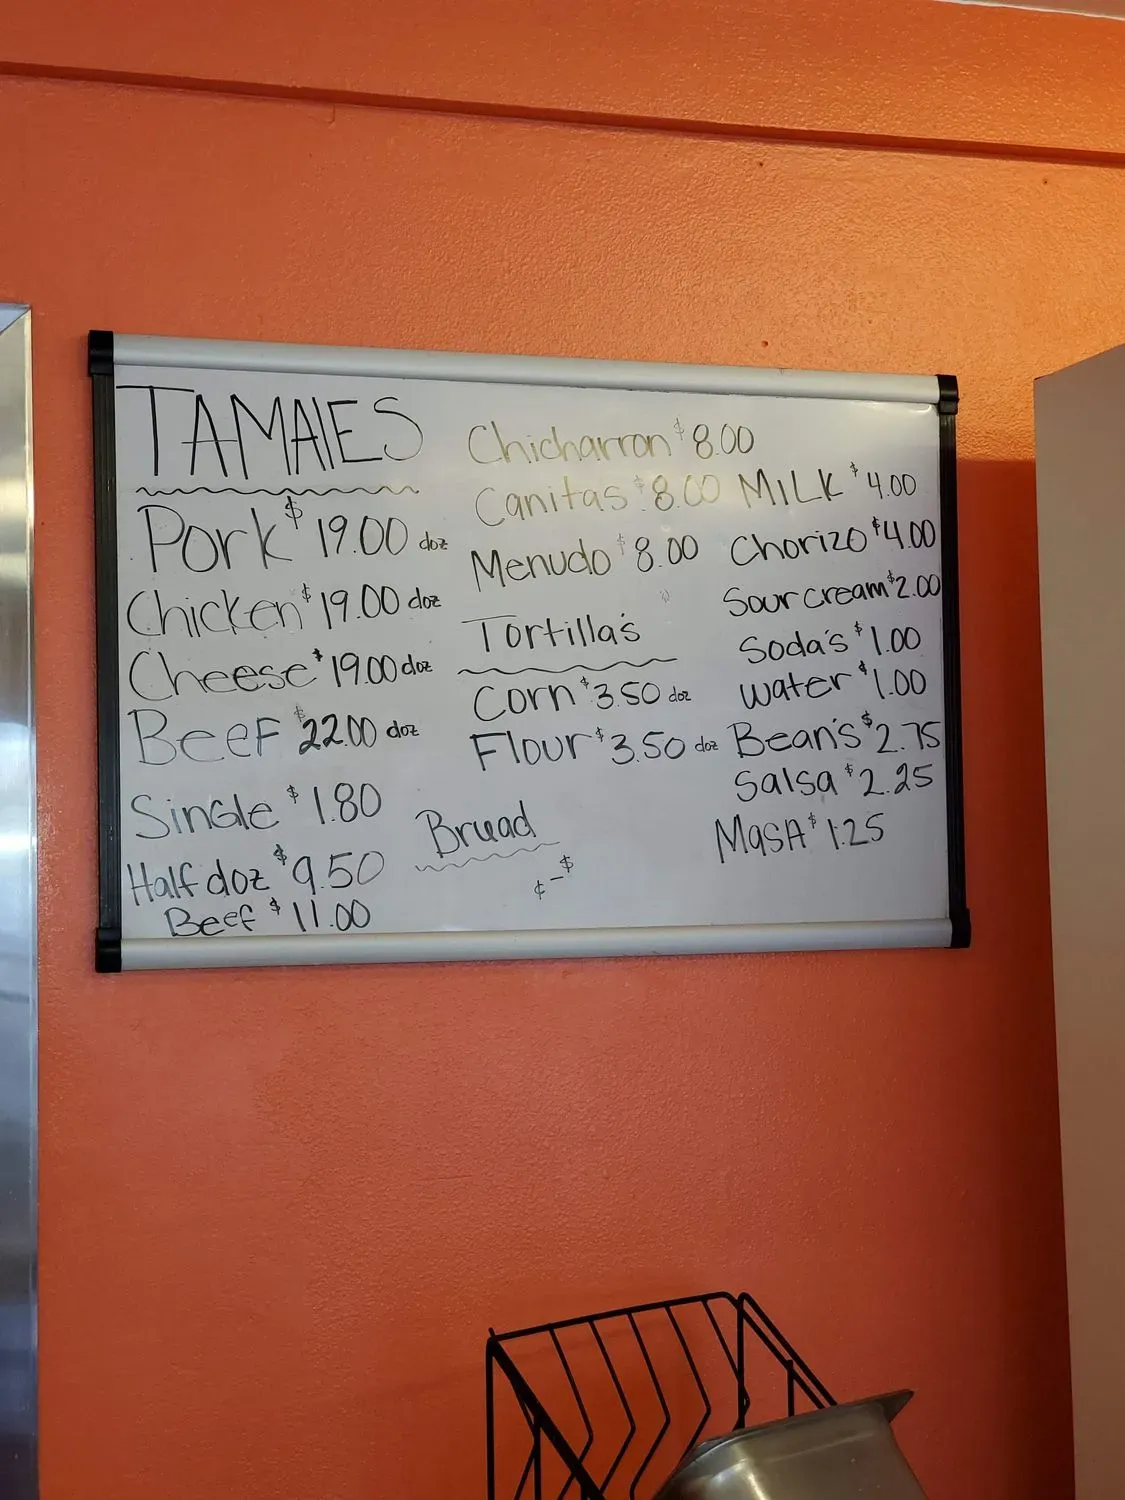 TAMALES
Pork $19.00 doz
Chicken $19.00 doz
Cheese $19.00 doz
Beef $22.00 doz
Single $1.80
Half doz $9.50
Beef $11.00
Chicharron $8.00
Canitas $8.00
Menudo $8.00
Tortilla's
Corn $3.50 doz
Flour $3.50 doz
Bruad
¢-$
MiLK $4.00
Chorizo $4.00
Sour cream $2.00
Soda's $1.00
water $1.00
Bean's $2.75
Salsa $2.25
MasA $1.25